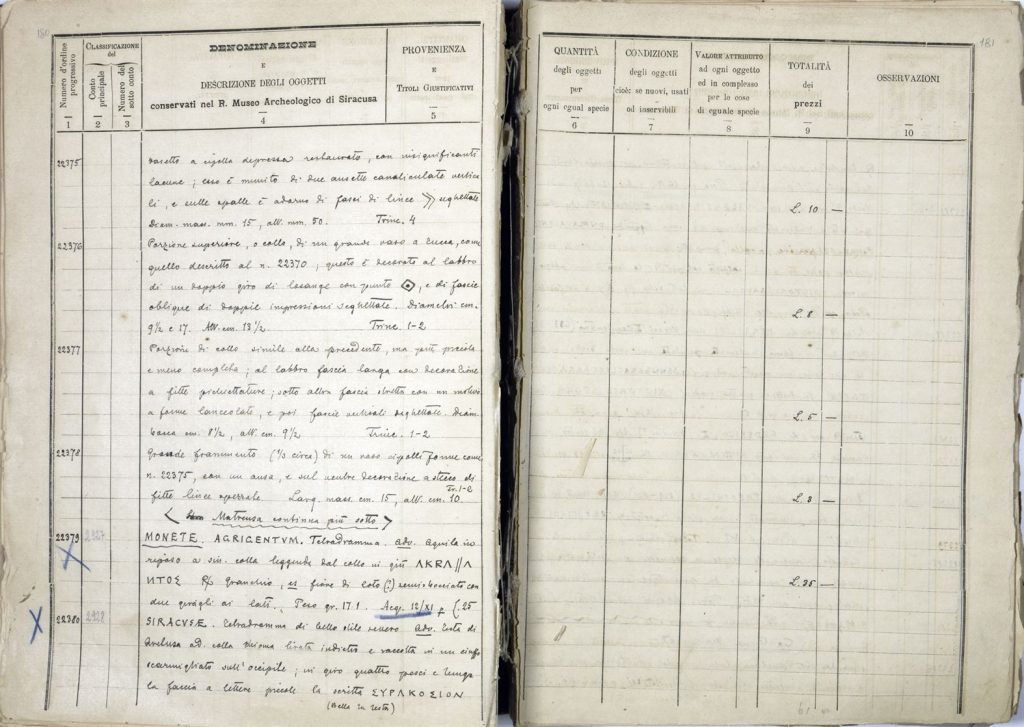 180
Numero d'ordine progressivo
CLASSIFICAZIONE del
Conto principale
Numero del sotto conto
DENOMINAZIONE
E
DESCRIZIONE DEGLI OGGETTI
conservati nel R. Museo Archeologico di Siracusa
PROVENIENZA
E
TITOLI GIUSTIFICATIVI
1 2 3 4 5
22375 vasetto a cipolla depressa restaurato, con insignificanti
lacune; esso è munito di due ansette canaliculate vertica
li, e sulle spalle è adorno di fasci di linee seghettate
Diam. mass. mm. 15, alt. mm. 50. Trinc. 4
22376 Porzione superiore, o collo, di un grande vaso a , come
quello descritto al n. 22370, questo è decorato al labbro
di un doppio giro di losange con punto, e di fascie
oblique di doppie impressioni seghettate. Diametri cm.
9½ e 17. Alt. cm. 13½. Trinc. 1-2
22377 Porzione di collo simile alla precedente, ma più piccola
e meno completa; al labbro fascia larga con decorazione
a fitte ; sotto altra fascia stretta con un motivo
a forme lanceolate, e poi fascie verticali seghettate. Diam.
bocca cm. 8½, alt. cm. 9½ Trinc. 1-2
22378 Grande frammento (⅓ circa) di un vaso forme come
n. 22375, con un ansa, e sul ventre decorazione a di
fitte linee Larg. mass. cm. 15, alt. cm. 10. Tr. 1-2
< Matrensa continua più sotto >
22379 2927 MONETE. AGRIGENTVM. Tetradramma. adv. aquila in
riposo a sin. colla leggenda dal collo in giù ΛKRΛ//Λ
ИTOS Rx Granchio, es fiore di loto (?) semisbocciato con
due ai lati. Peso gr. 17.1. Acq. 12/XI £. 25
22380 2928 SIRACVSÆ. Tetradramma di bello stile severo. adv. Testa di
Aretusa ad. colla chioma tirata indietro e raccolta in un ciuffo
scarmigliato sull'occipite; in giro quattro pesci e lungo
la faccia a lettere piccole la scritta ΣYPAKOΣION
(Bella in testa)
181
QUANTITÀ
degli oggetti
per
ogni egual specie
CONDIZIONE
degli oggetti
cioè: se nuovi, usati
od inservibili
VALORE ATTRIBUITO
ad ogni oggetto
ed in complesso
per le cose
di eguale specie
TOTALITÀ
dei
prezzi
OSSERVAZIONI
6 7 8 9 10
L. 10 —
L. 8 —
L. 5 —
L. 3 —
L. 25 —